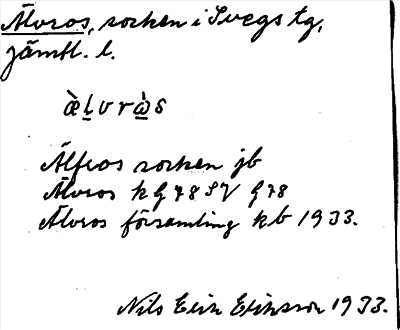 Älvros, socken i Svegs tg,
jämtl. l.
æ̀l̠vrɷ̠̀s
Älfros socken jb
Älvros kG 78 SV G78
Älvros församling kb 1933.
Nils Erik Eriksson 1933.